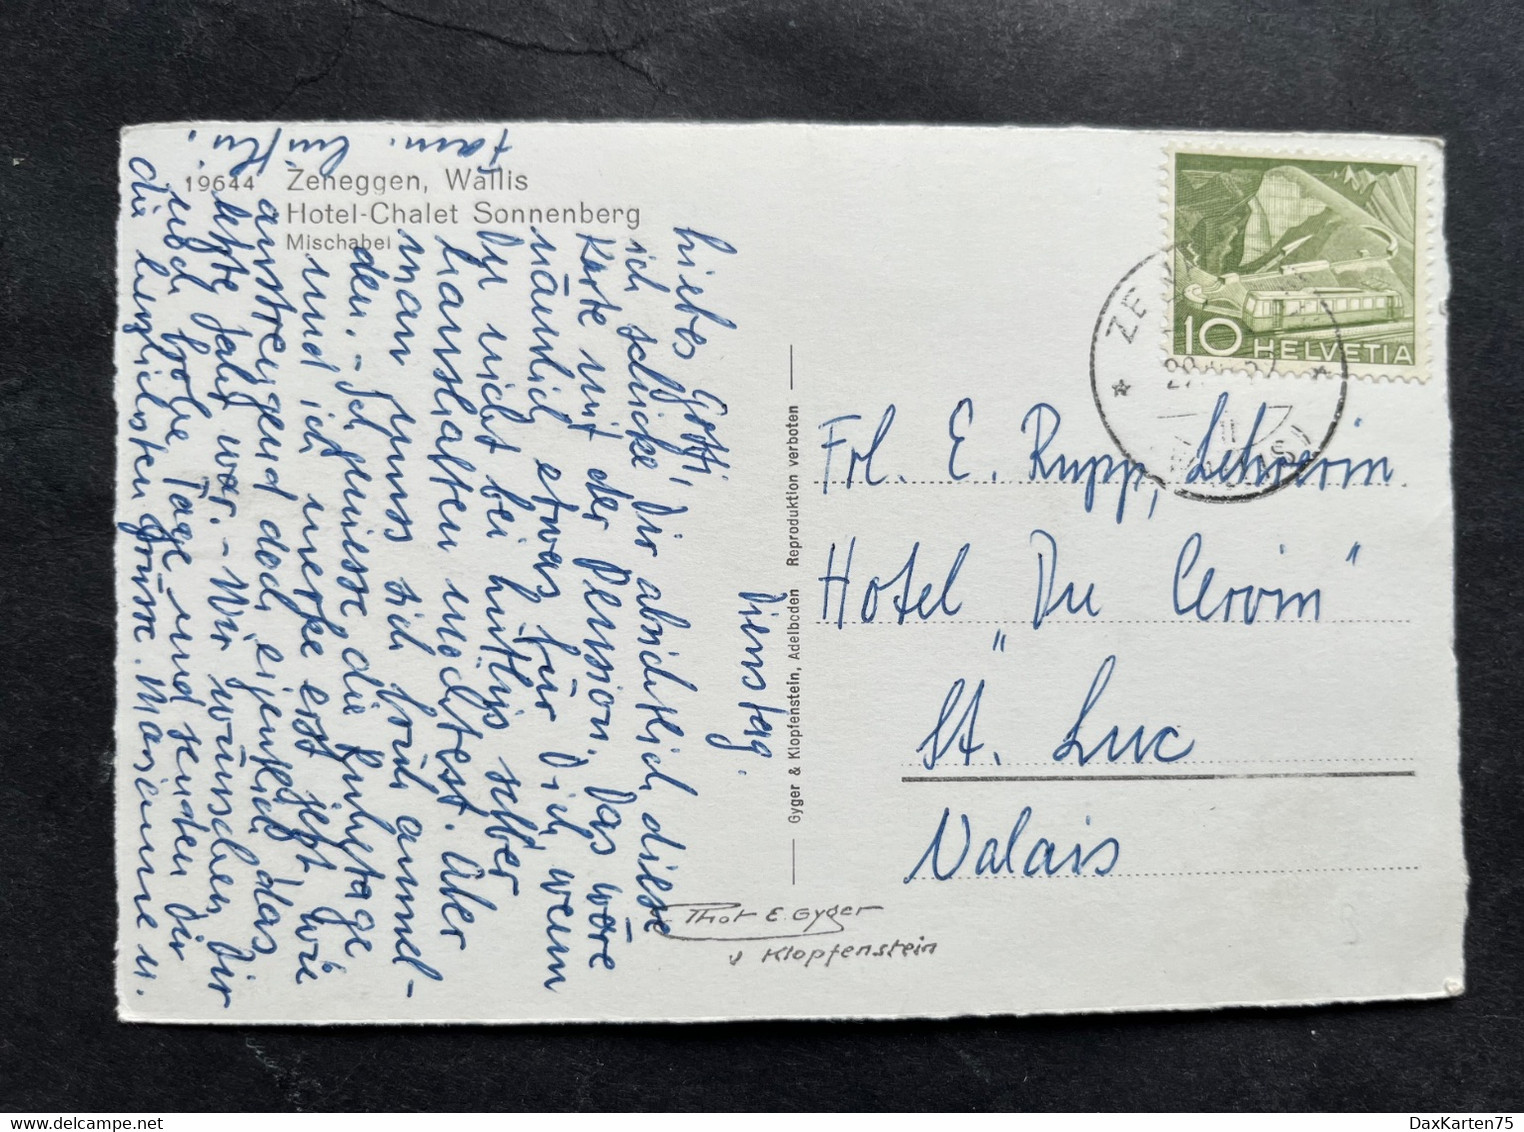 19644 Zeneggen, Wallis
Hotel-Chalet Sonnenberg
Mischabel
Dienstag.
Liebes Gotti,
ich schicke Dir absichtlich diese
Karte mit der Pension. Das wäre
nämlich etwas für Dich, wenn
Du nicht bei selber
haushalten möchtest. Aber
man muss sich früh anmel-
den. - Ich geniesse die Ruhetage
und ich merke erst jetzt wie
anstrengend doch eigentlich das
letzte Jahr war. - Wir wünschen Dir
noch frohe Tage und senden Dir
die herzlichsten Grüsse. Marianne u.
Fam.
Gyger & Klopfenstein, Adelboden Reproduktion verboten
Phot E. Gyger
u Klopfenstein
10 HELVETIA
Frl. E. Rupp, Lehrerin
Hotel "Du Cervin"
St. Luc
Valais
DaxKarten75